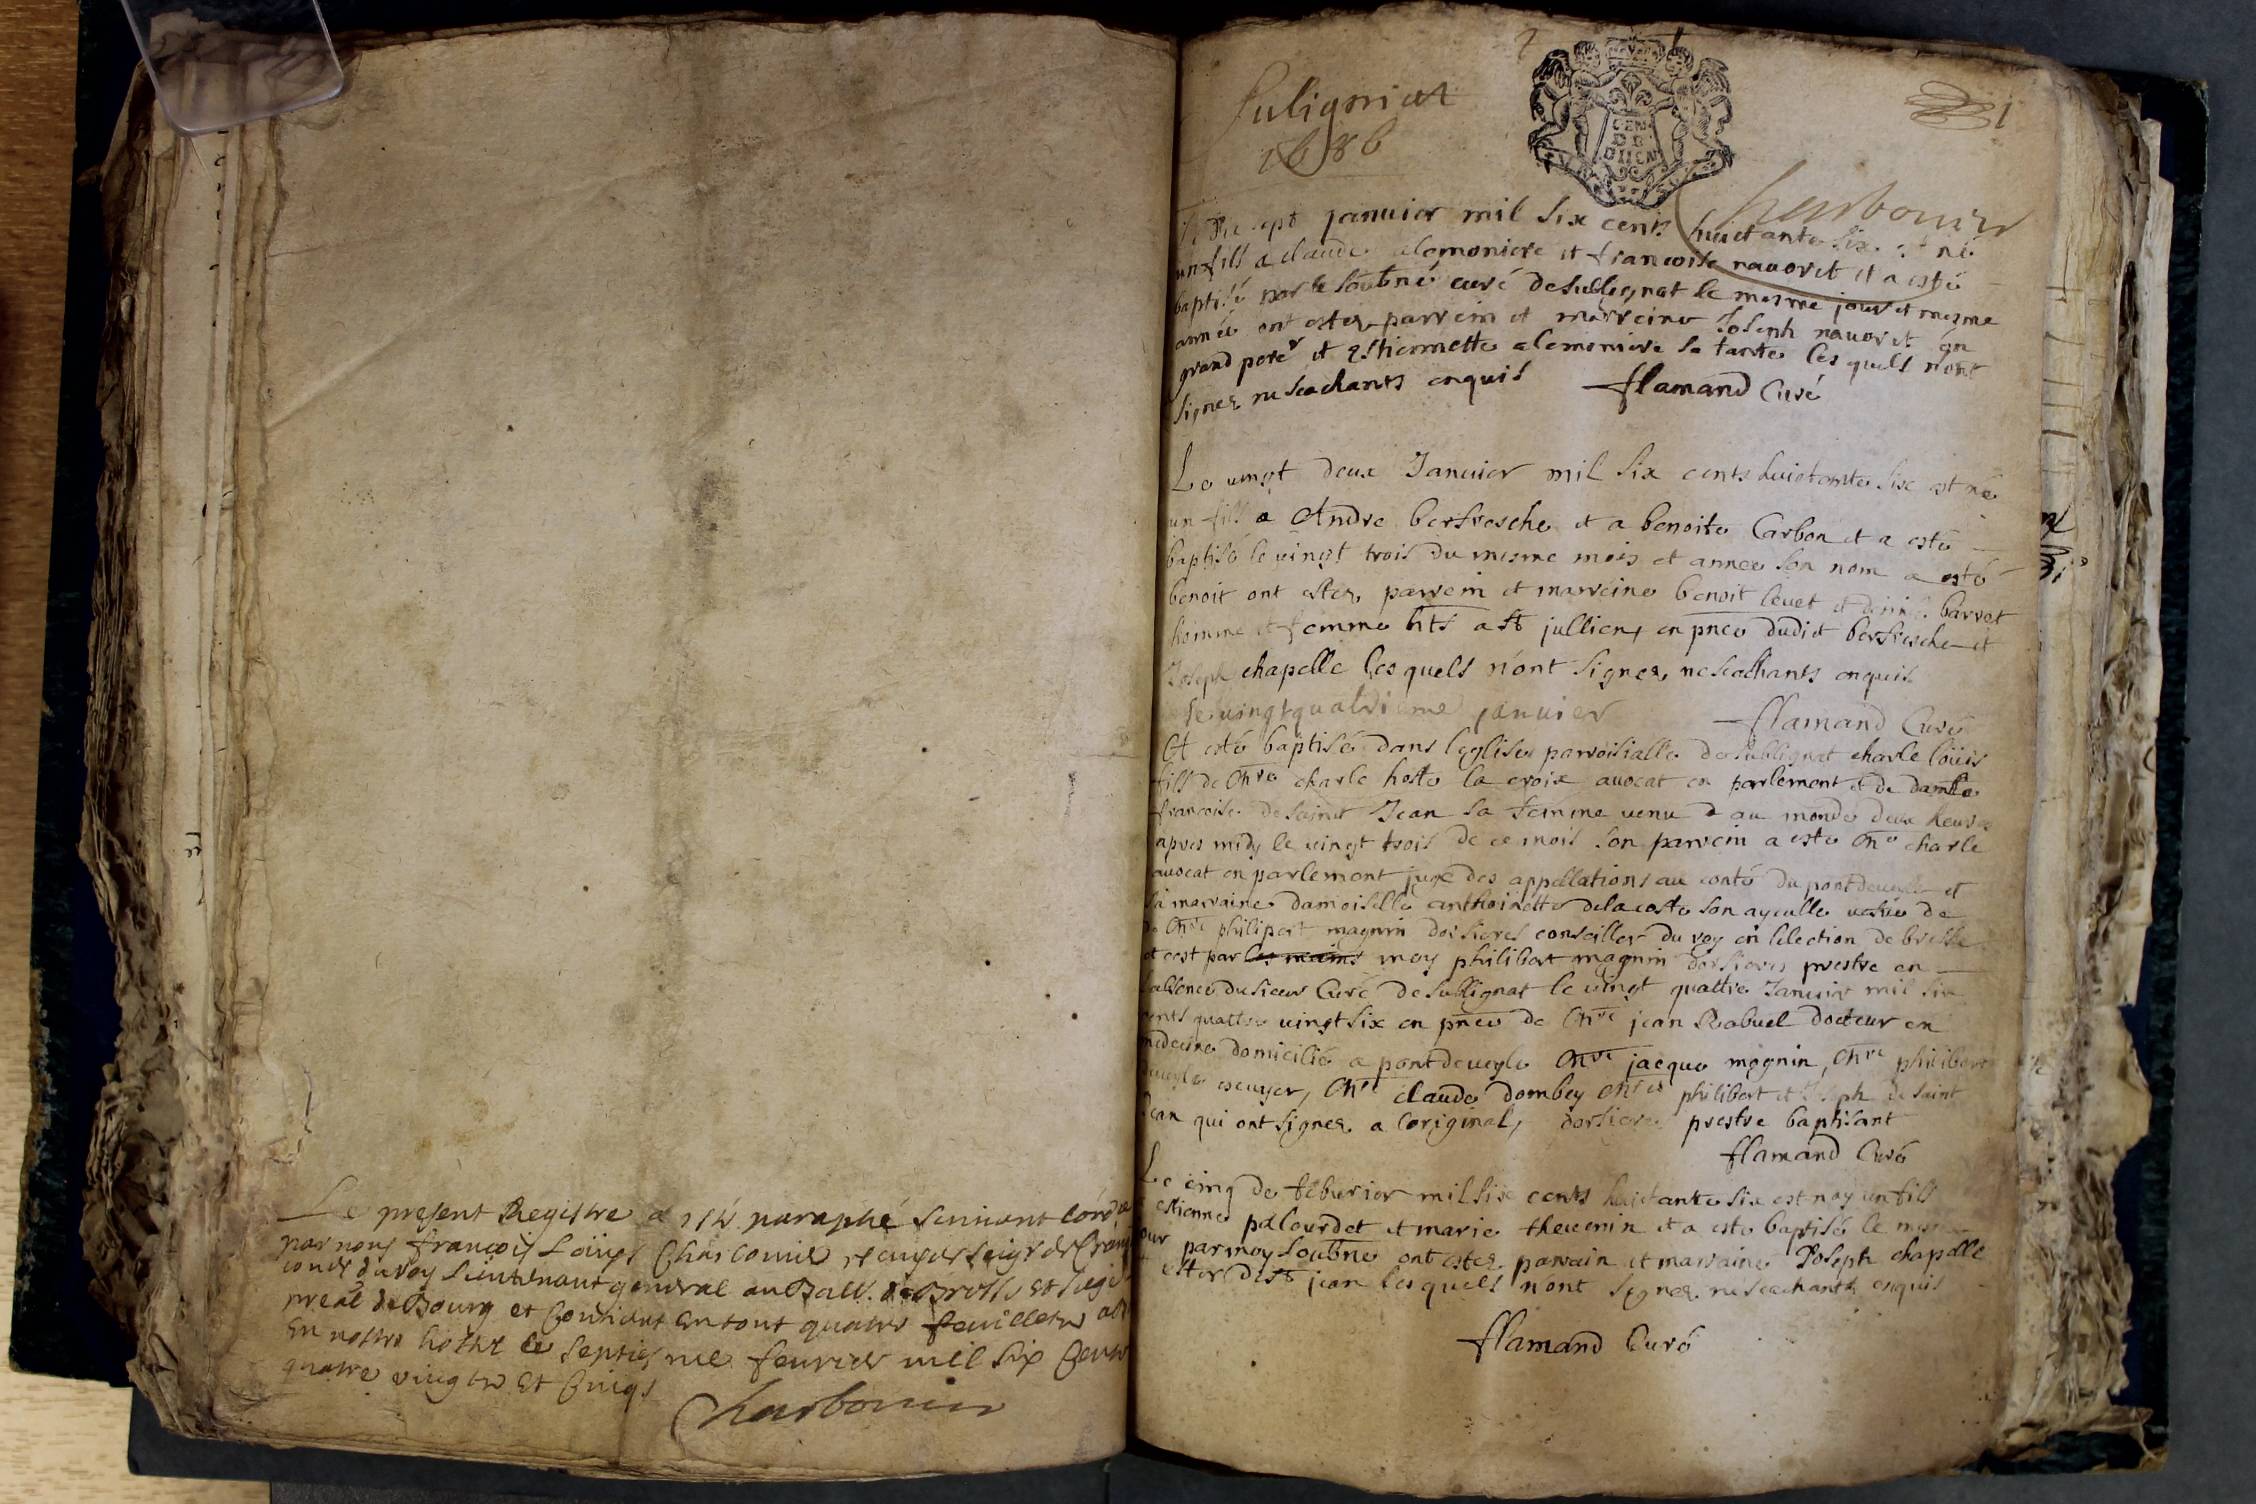 Le present Registre a esté paraphé suivant l'ord
par nous françois Loüys Charbonnier escuyer seigr de Crang
conser du roy lieutenant general au Ball. de Bresse et siege
preal de Bourg et Contient en tout quatre feuillets
En nostre hostel ce septiesme feurier mil six Cents
quatre vingts Et Cinq
Charbonnier
Suligniat
1686
1
Charbonnier
sept januier mil six cents huictante six est né
un fils a claude alemoniere et francoise nauoret et a esté
baptisé par le soubné curé de sullignat le mesme jour et mesme
année ont estez parrein et marreine Joseph nauoret son
grand pere et estiennette alemoniere sa tante les quels n'ont
signez ne scachants enquis flamand Curé
Le uingt deux Januier mil six cents huictante six est né
un fils a Andre berfresche et a benoite Carbon et a esté
baptisé le uingt trois du mesme mois et annee son nom a esté
benoit ont estez parrein et marreine benoit leuet et barret
homme et femme hts a st jullien, en pnce dudit berfresche et
Joseph chapelle les quels n'ont signez ne scachants enquis
le uingt quatrieme januier flamand Curé
A esté baptisé dans leglise parroisialle de sullignat charle loüis
fils de Mre charle hoste la croix auocat en parlement et de damlle
francoise de saint Jean sa femme uenu au monde deux heures
apres midy le uingt trois de ce mois son parrein a esté Mre charle
auocat en parlement juge des appellations au conté du pontdeueyle et
sa marraine damoiselle anthoinette delacoste son ayeulle uefue de
Mre philipert magnin dorsieres conseiller du roy en l'election de bresse
et cest par les mains moy philibert magnin dorsieres prestre en
labsence du sieur Curé de sullignat le uingt quattre Januier mil six
cents quattre uingt six en pnce de Mre jean Rabuel docteur en
medecine domicilié a pontdeueyle Mre jacque magnin, Mre philibert
deueyle escuyer, Mre claude dombey Mres philibert et Joseph de saint
Jean qui ont signez a l'original, dorsieres prestre baptisant
flamand Curé
Le cinq de feburier mil six cents huictante six est nay un fils
estienne palourdet et marie theuenin et a esté baptisé le mesme
jour par moy soubné ont estez parrain et marraine Joseph chapelle
ester de st jean les quels n'ont signez ne scachants enquis
flamand Curé